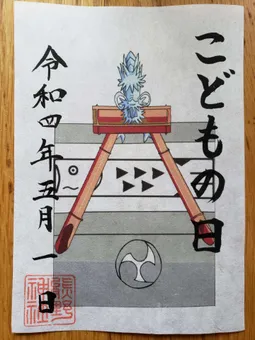 こどもの日
令和四年五月一日
熊野
神社